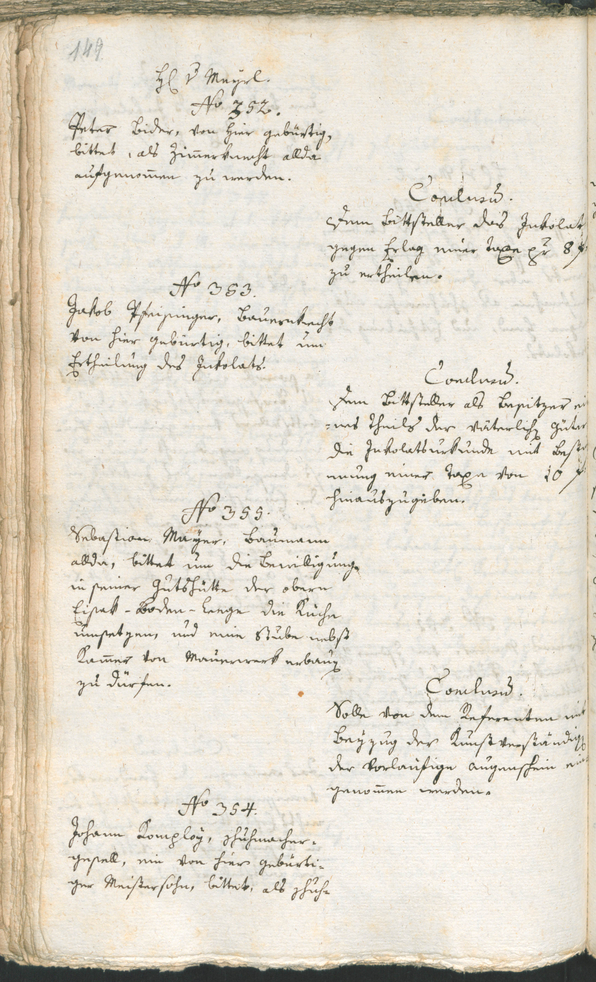 149.
H. v Mayrl.
No 352.
Peter Bider, von hier gebürtig,
bittet, als Zimmerknecht allda
aufgenommen zu werden.
Conclusū.
Dem Bittsteller das Inkolat
gegen Erlag einer Taxe pr 8 f
zu ertheilen.
No 353.
Jakob Pfeifinger, Bauernknecht
von hier gebürtig, bittet um
Ertheilung des Inkolats.
Conclusū.
Dem Bittsteller als Besitzer ei
=nes Theils der väterlich Güter
die Inkolatsurkunde mit Besti
mung einer Taxe von 10 f
hinauszugeben.
No 355.
Sebastian Mayer, Baumann
allda, bittet um die Bewilligung
in seiner Gutshütte der obern
Eisak-Boden-Lenge die Küche
umsetzen, und eine Stube nebst
Kammer von Mauerwerk erbauen
zu dürfen.
Conclusū.
Solle von dem Referenten mit
Beyzug der Kunstverständig
der vorläufige Augenschein ein
genommen werden.
No 354.
Johann Komploÿ, Schuhmacher-
gesell, ein von hier gebürti-
ger Meistersohn, bittet, als Schuh-